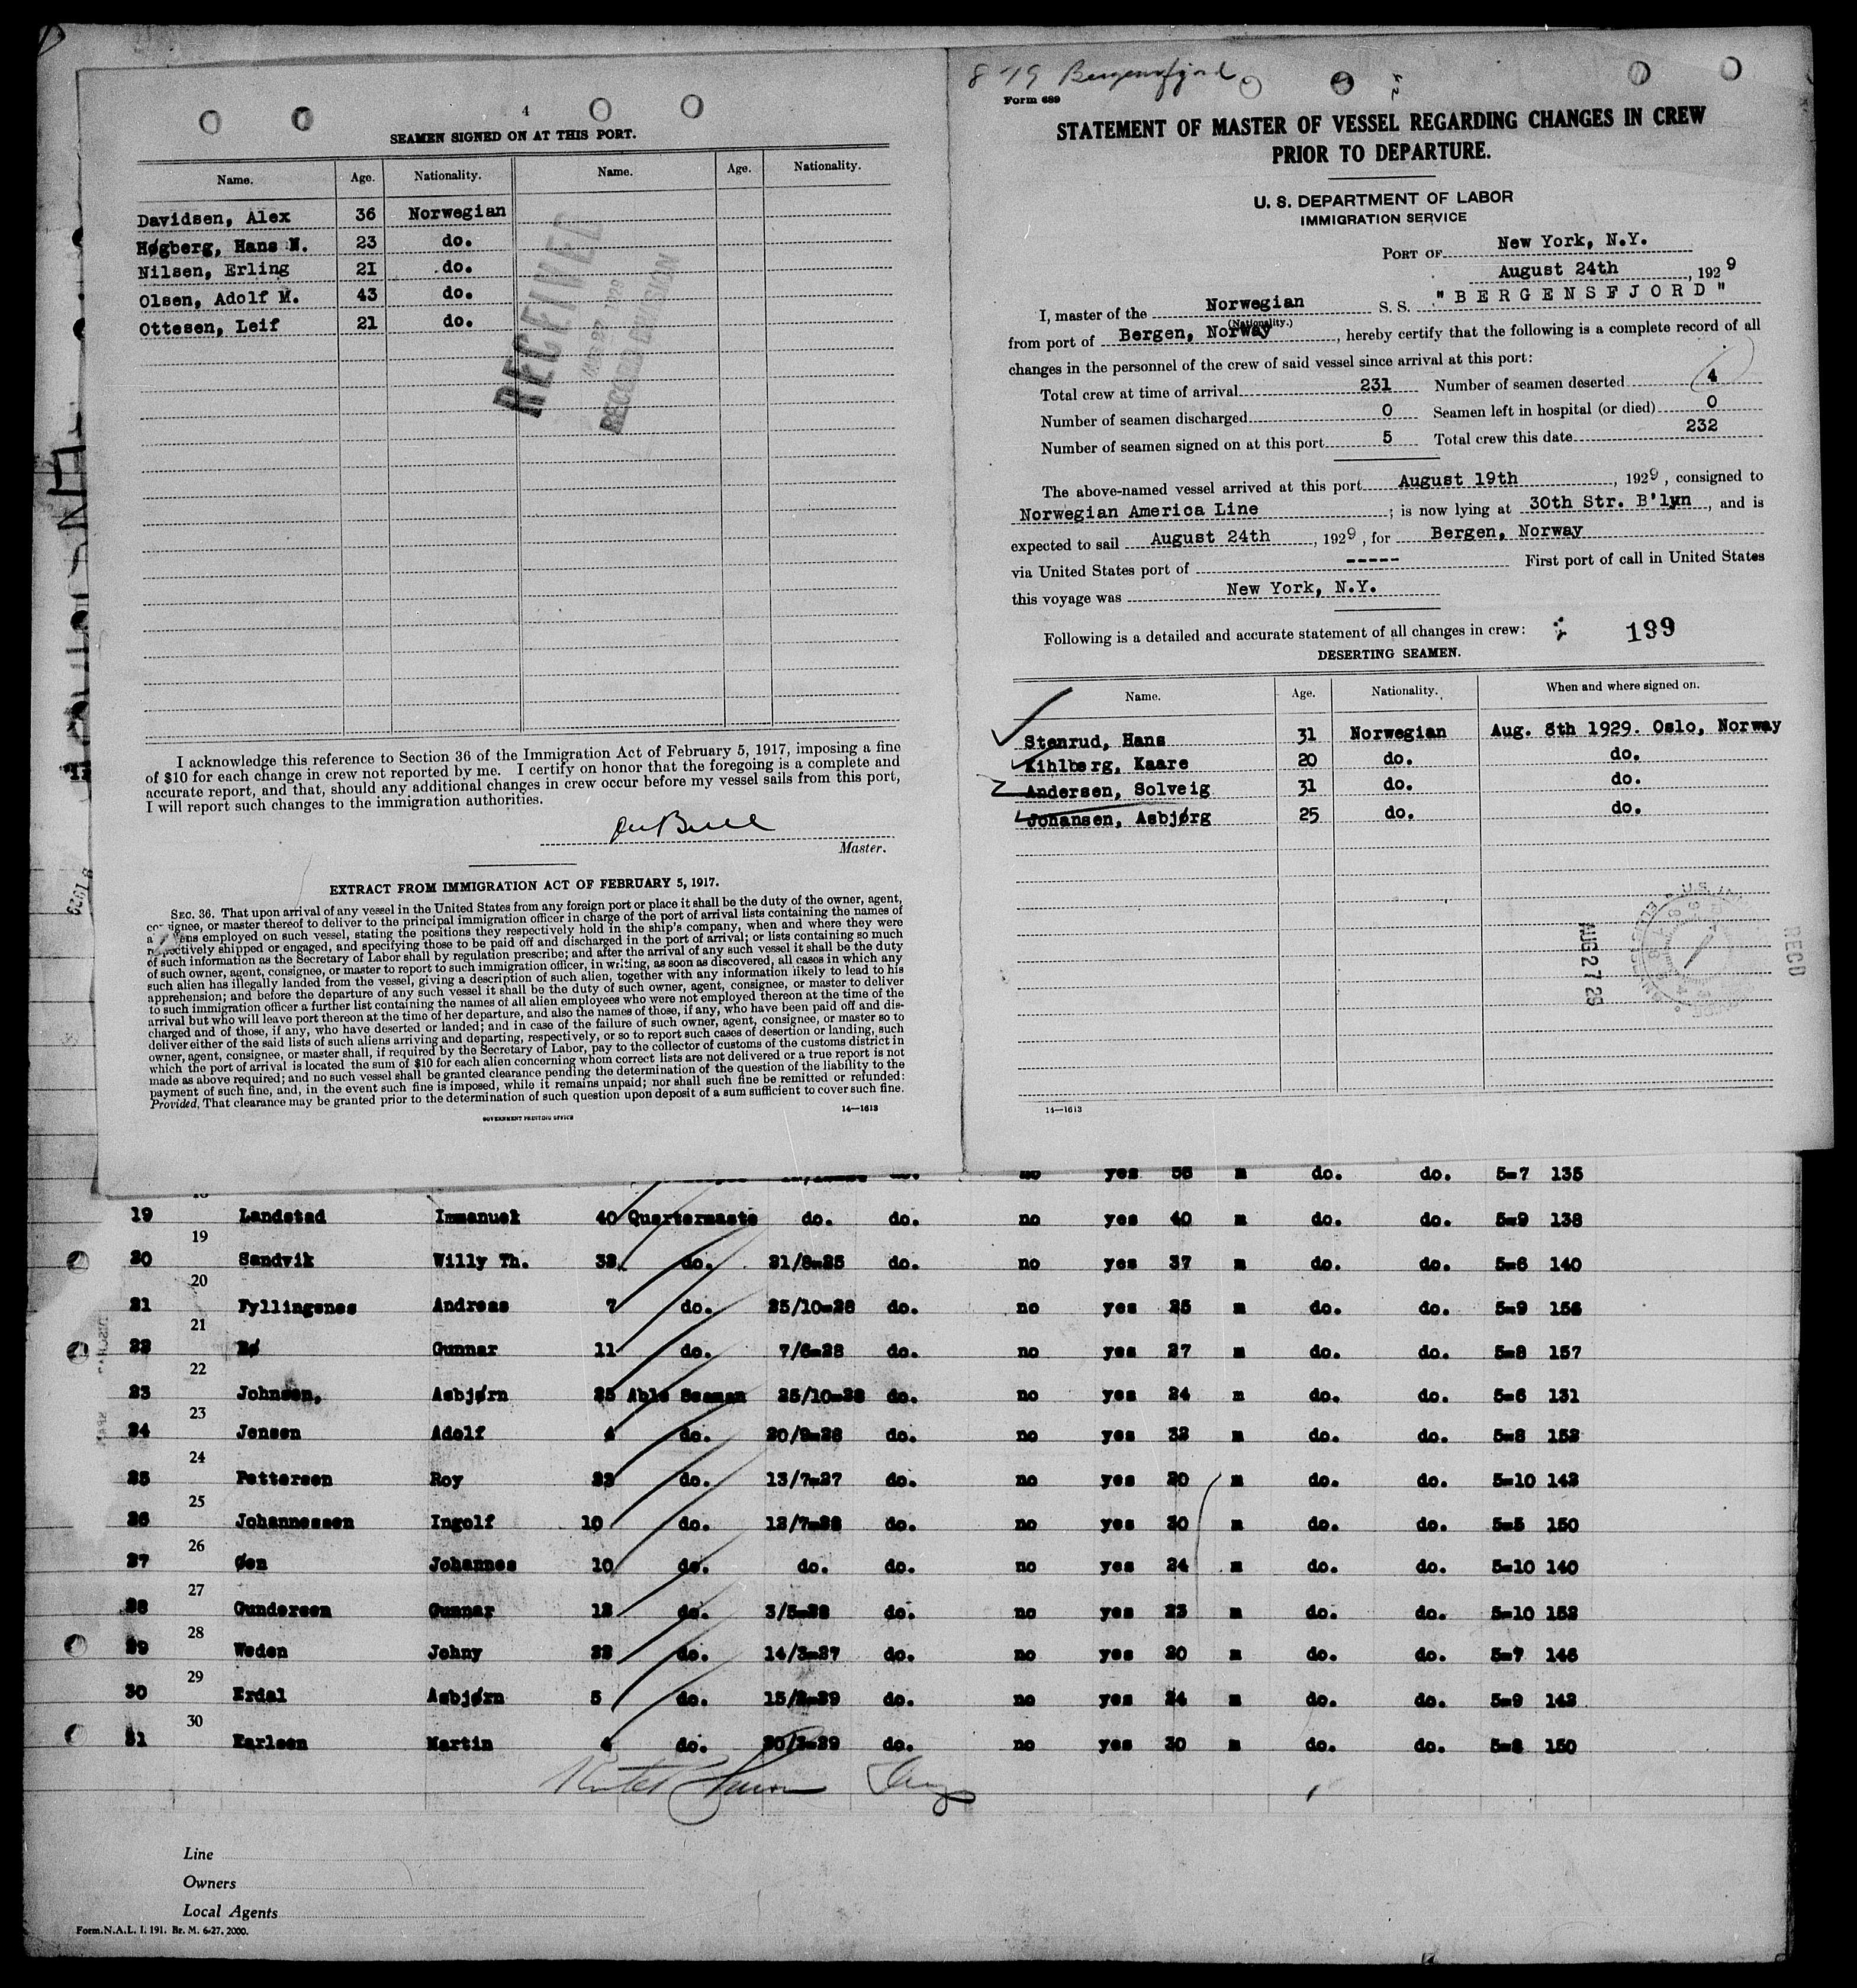 4
SEAMEN SIGNED ON AT THIS PORT.
Name. Age. Nationality. Name. Age. Nationality.
Davidsen, Alex 36 Norwegian
Høgberg, Hans N. 23 do.
Nilsen, Erling 21 do.
Olsen, Adolf M. 43 do.
Ottesen, Leif 21 do.
RECEIVED
RECORD DIVISION
I acknowledge this reference to Section 36 of the Immigration Act of February 5, 1917, imposing a fine
of $10 for each change in crew not reported by me. I certify on honor that the foregoing is a complete and
accurate report, and that, should any additional changes in crew occur before my vessel sails from this port,
I will report such changes to the immigration authorities.
Master.
EXTRACT FROM IMMIGRATION ACT OF FEBRUARY 5, 1917.
SEC. 36. That upon arrival of any vessel in the United States from any foreign port or place it shall be the duty of the owner, agent,
consignee, or master thereof to deliver to the principal immigration officer in charge of the port of arrival lists containing the names of
employed on such vessel, stating the positions they respectively hold in the ship's company, when and where they were
respectively shipped or engaged, and specifying those to be paid off and discharged in the port of arrival; or lists containing so much
of such information as the Secretary of Labor shall by regulation prescribe; and after the arrival of any such vessel it shall be the duty
of such owner, agent, consignee, or master to report to such immigration officer, in writing, as soon as discovered, all cases in which any
such alien has illegally landed from the vessel, giving a description of such alien, together with any information likely to lead to his
apprehension; and before the departure of any such vessel it shall be the duty of such owner, agent, consignee, or master to deliver
to such immigration officer a further list containing the names of all alien employees who were not employed thereon at the time of the
arrival but who will leave port thereon at the time of her departure, and also the names of those, if any, who have been paid off and dis-
charged and of those, if any, who have deserted or landed; and in case of the failure of such owner, agent, consignee, or master so to
deliver either of the said lists of such aliens arriving and departing, respectively, or so to report such cases of desertion or landing, such
owner, agent, consignee, or master shall, if required by the Secretary of Labor, pay to the collector of customs of the customs district in
which the port of arrival is located the sum of $10 for each alien concerning whom correct lists are not delivered or a true report is not
made as above required; and no such vessel shall be granted clearance pending the determination of the question of the liability to the
payment of such fine, and, in the event such fine is imposed, while it remains unpaid; nor shall such fine be remitted or refunded:
Provided, That clearance may be granted prior to the determination of such question upon deposit of a sum sufficient to cover such fine.
GOVERNMENT PRINTING OFFICE 14—1613
Bergensfjord
Form 689
STATEMENT OF MASTER OF VESSEL REGARDING CHANGES IN CREW
PRIOR TO DEPARTURE.
U. S. DEPARTMENT OF LABOR
IMMIGRATION SERVICE
PORT OF New York, N.Y.
August 24th, 1929
I, master of the Norwegian S. S. "BERGENSFJORD"
(Nationality.)
from port of Bergen, Norway, hereby certify that the following is a complete record of all
changes in the personnel of the crew of said vessel since arrival at this port:
Total crew at time of arrival 231 Number of seamen deserted 4
Number of seamen discharged 0 Seamen left in hospital (or died) 0
Number of seamen signed on at this port 5 Total crew this date 232
The above-named vessel arrived at this port August 19th, 1929, consigned to
Norwegian America Line; is now lying at 30th Str. B'lyn, and is
expected to sail August 24th, 1929, for Bergen, Norway
via United States port of ----- First port of call in United States
this voyage was New York, N.Y.
Following is a detailed and accurate statement of all changes in crew: 199
DESERTING SEAMEN.
Name. Age. Nationality. When and where signed on.
Stenrud, Hans 31 Norwegian Aug. 8th 1929. Oslo, Norway
Kihlberg, Kaare 20 do. do.
Andersen, Solveig 31 do. do.
Johansen, Asbjørg 25 do. do.
AUG 27 29
RECD
14—1613
no yes m do. do. 5-7 135
18
19 Landstad Immanuel 40 Quartermaste do. do. no yes 40 m do. do. 5-9 138
19
20 Sandvik Willy Th. do. do. no yes 37 m do. do. 5-6 140
20
21 Fyllingsnes Andreas 7 do. 25/10-28 do. no yes 25 m do. do. 5-9 156
21
22 Gunnar 11 do. 7/6-28 do. no yes 27 m do. do. 5-8 157
22
23 Johnsen, Asbjørn 25 Able Seaman 25/10-28 do. no yes 24 m do. do. 5-6 131
23
24 Jensen Adolf 4 do. 20/9-28 do. no yes 32 m do. do. 5-8 152
24
25 Pettersen Roy do. 13/7-27 do. no yes 20 m do. do. 5-10 142
25
26 Johannessen Ingolf 10 do. 12/7-28 do. no yes 30 m do. do. 5-5 150
26
27 Øen Johannes 10 do. do. do. no yes 24 m do. do. 5-10 140
27
28 Gundersen Gunnar 12 do. 3/5-28 do. no yes 23 m do. do. 5-10 152
28
29 Weden Johny do. 14/3-27 do. no yes 20 m do. do. 5-7 146
29
30 Erdal Asbjørn 5 do. 15/2-29 do. no yes 24 m do. do. 5-9 142
30
31 Karlsen Martin 4 do. do. no yes 30 m do. do. 5-8 150
Line
Owners
Local Agents
Form.N.A.L. I. 191. Br. M. 6-27. 2000.